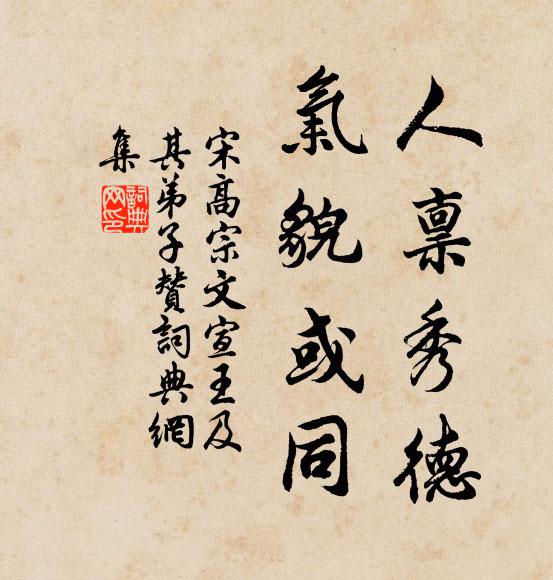 人禀秀德
氣貌或同
宋高宗文宣王及
其弟子贊詞典網
集
詞典網印